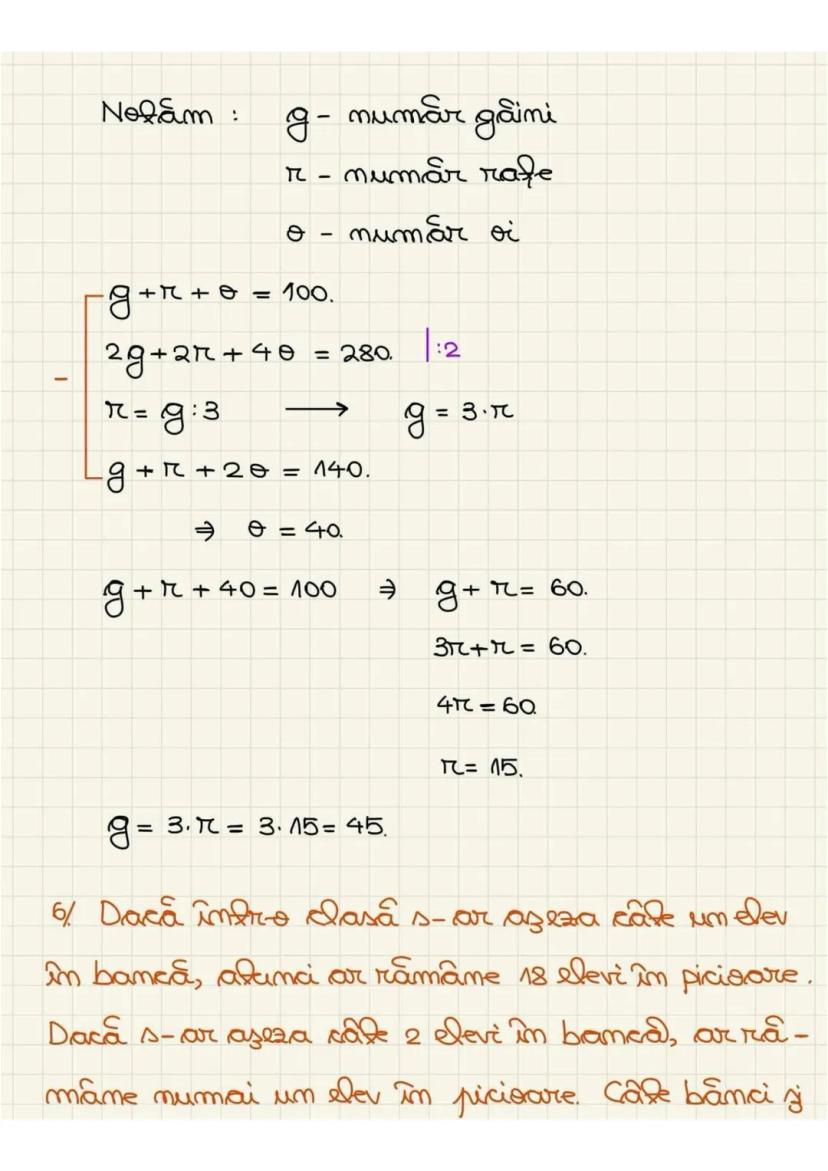 Notăm : g - număr găini
r - număr rațe
o - număr oi
g + r + o = 100.
2g + 2r + 4o = 280. |:2
-
r = g : 3 ⟶ g = 3·r
g + r + 2o = 140.
⇒ o = 40.
g + r + 40 = 100 ⇒ g + r = 60.
3r + r = 60.
4r = 60
r = 15.
g = 3·r = 3·15 = 45.
6/ Dacă într-o clasă s-ar așeza câte un elev
în bancă, atunci ar rămâne 18 elevi în picioare.
Dacă s-ar așeza câte 2 elevi în bancă, ar ră-
mâne numai un elev în picioare. Câte bănci și